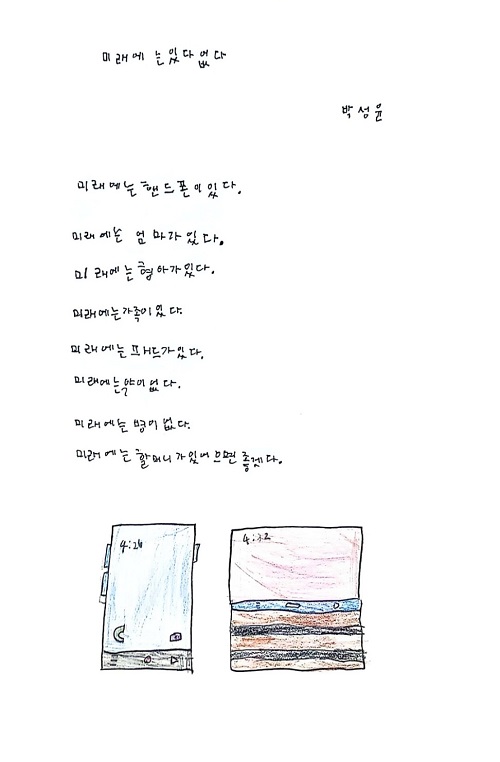 미래에는있다없다
박성윤
미래에는핸드폰이있다.
미래에는 엄마가있다.
미래에는형아가있다.
미래에는가족이있다.
미래에는패드가있다.
미래에는약이없다.
미래에는병이없다.
미래에는할머니가있어으면좋겠다.
4:26
4:32